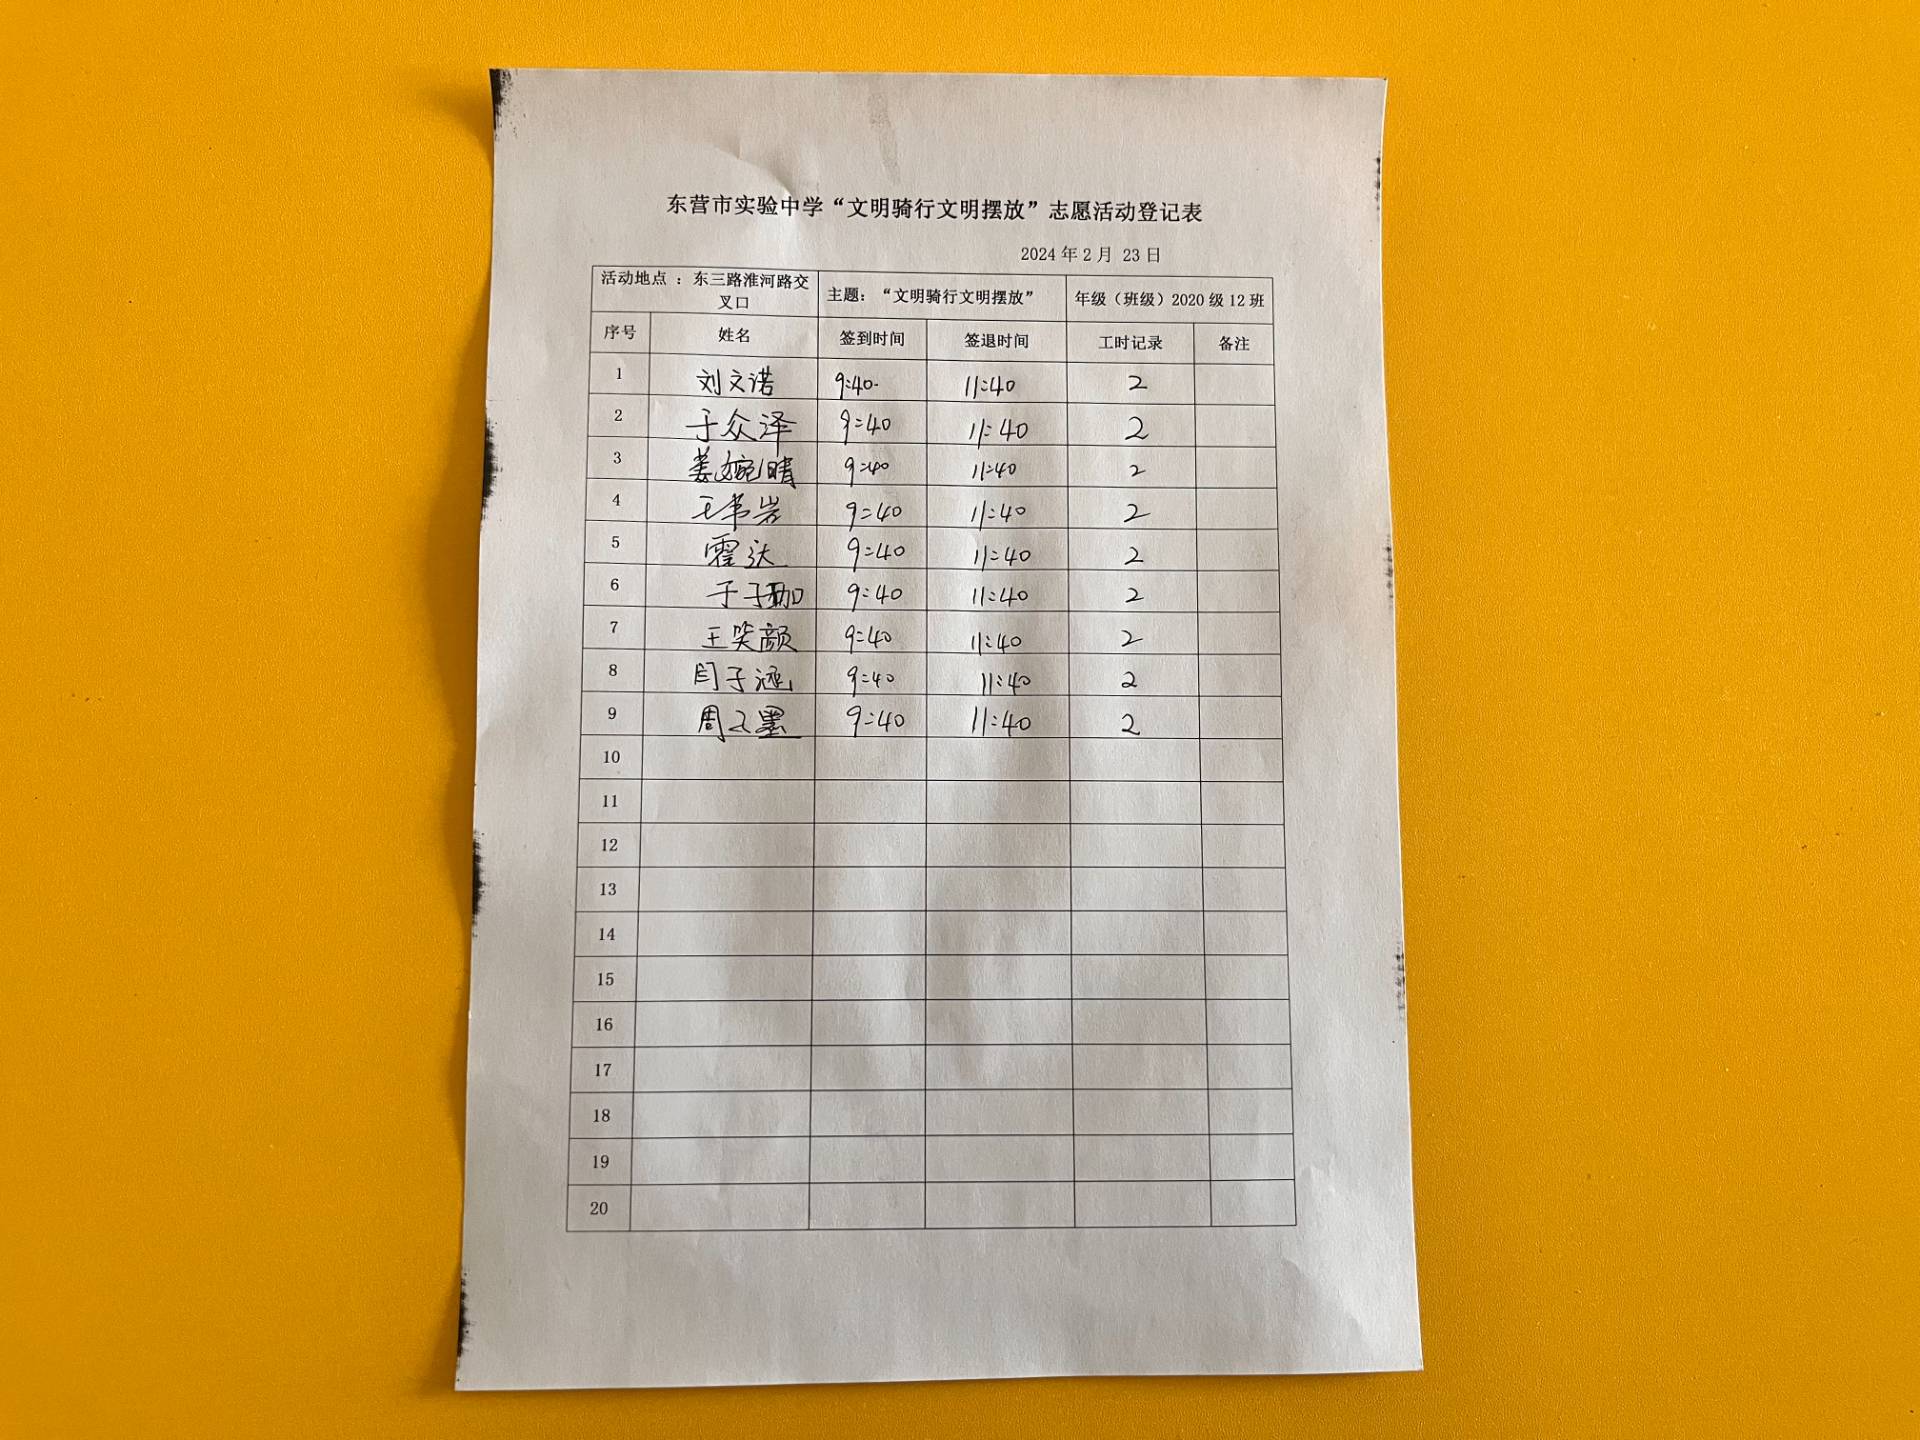 东营市实验中学“文明骑行文明摆放”志愿活动登记表
2024 年 2 月 23 日
活动地点 ：东三路淮河路交
叉口
主题：“文明骑行文明摆放”
年级（班级）2020 级 12 班
序号 姓名 签到时间 签退时间 工时记录 备注
1 刘文诺 9:40 11:40 2
2 于众泽 9:40 11:40 2
3 姜婉晴 9:40 11:40 2
4 王韦岩 9:40 11:40 2
5 霍达 9:40 11:40 2
6 于子珈 9:40 11:40 2
7 王笑颜 9:40 11:40 2
8 闫子涵 9:40 11:40 2
9 周墨 9:40 11:40 2
10
11
12
13
14
15
16
17
18
19
20